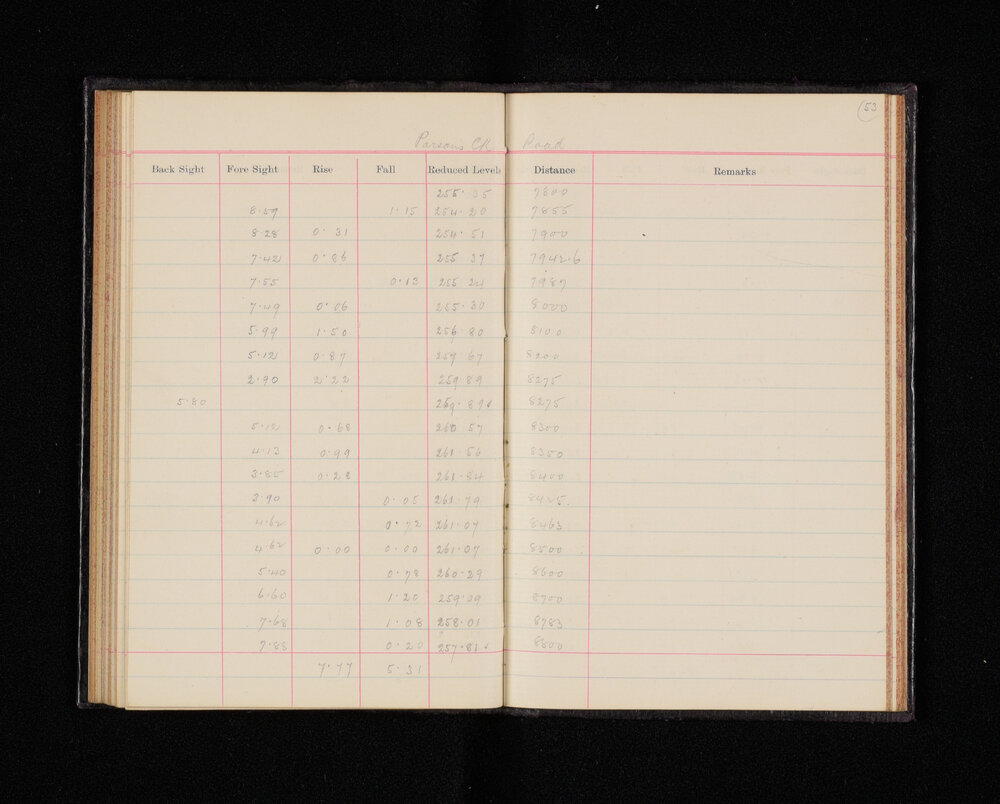 53
Parsons CK Road
Back Sight Fore Sight Rise Fall Reduced Levels Distance Remarks
255.35 7800
8.59 1.15 254.20 7855
8.28 0.31 254.51 7900
7.42 0.86 255 37 7942.6
7.55 0.13 255 24 7987
7.49 0.06 255.30 8000
5.99 1.50 256 80 8100
5.12 0.87 257 67 8200
2.90 2.22 259 89 8275
5.80 259.89 8275
5.12 0.68 260 57 8300
4.13 0.99 261.56 8350
3.85 0.28 261.84 8400
3.90 0.05 261.79 8425.
4.62 0.72 261.07 8463
4.62 0.00 0.00 261.07 8500
5.40 0.78 260.29 8600
6.60 1.20 259.09 8700
7.68 1.08 258.01 8783
7.88 0.20 257.81 8800
7.77 5.31